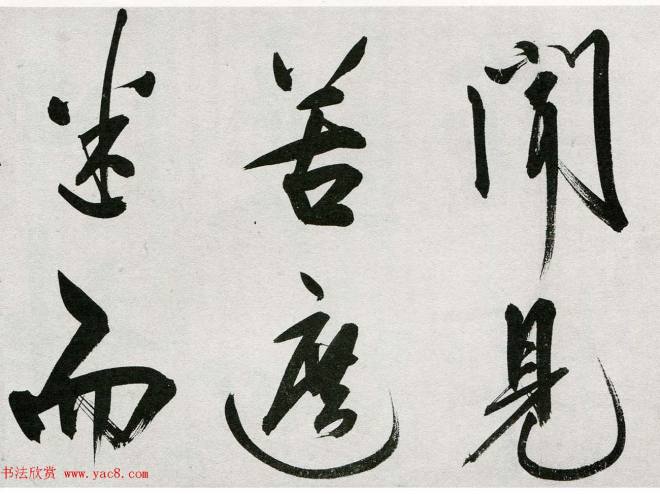 聞見
苦遮
迷而
书法欣赏 www.yac8.com